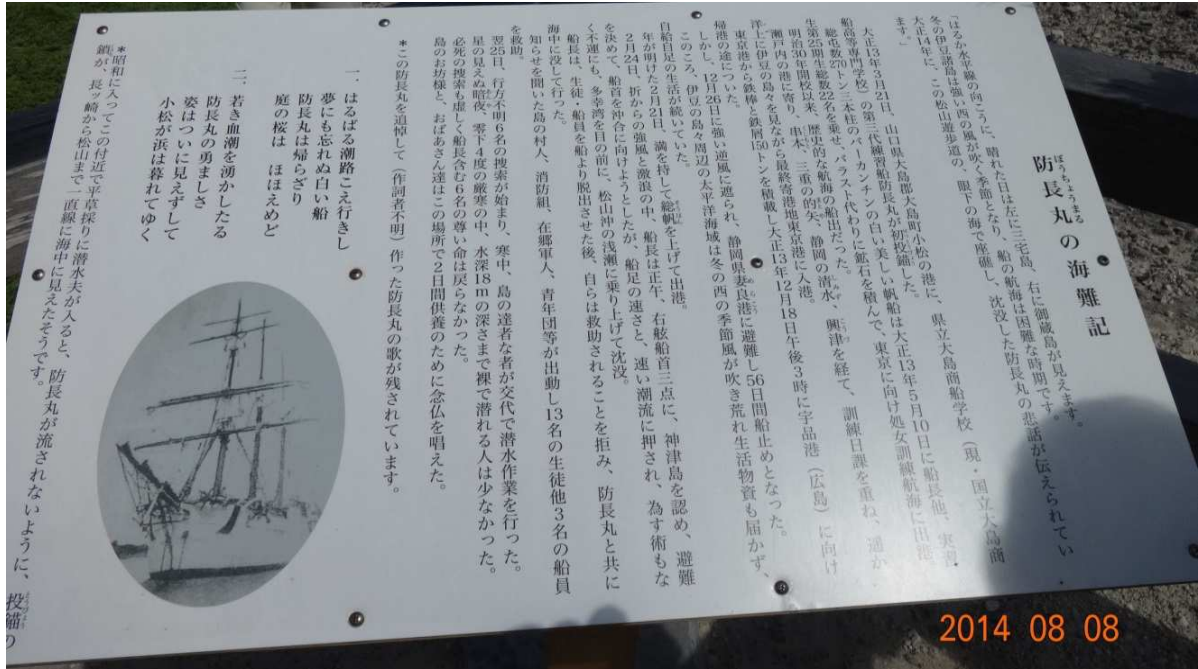 防長丸の海難記
ぼうちょうまる
「はるか水平線の向こうに、晴れた日は左に三宅島、右に御蔵島が見えます。
冬の伊豆諸島は強い西の風が吹く季節となり、船の航海は困難な時期です。
大正14年に、この松山遊歩道の、眼下の海で座礁し、沈没した防長丸の悲話が伝えられてい
ます。」
大正13年3月21日、山口県大島郡大島町小松の港に、県立大島商船学校(現・国立大島商
船高等専門学校)の第三代練習船防長丸が初投錨した。
総屯数270トン三本柱のバーカンチンの白い美しい帆船は大正13年5月10日に船長他、実習
生第25期生総数22名を乗せ、バラスト代わりに鉱石を積んで、東京に向け処女訓練航海に出港、
明治30年開校以来、歴史的な航海の船出だった。
瀬戸内の港に寄り、串本、三重の的矢、静岡の清水、興津を経て、訓練日課を重ね、遥か
洋上に伊豆の島々を見ながら最終寄港地東京港に入港。
東京港から鉄棒と鉄屑150トンを積載し大正13年12月18日午後3時に宇品港(広島)に向け
帰港の途についた。
しかし、12月26日に強い逆風に遮られ、静岡県妻良港に避難し56日間船止めとなった。
このころ、伊豆の島々周辺の太平洋海域は冬の西の季節風が吹き荒れ生活物資も届かず、
自給自足の生活が続いていた。
年が明けた2月21日、満を持して総帆を上げて出港。
2月24日、折からの強風と激浪の中、船長は正午、右舷船首三点に、神津島を認め、避難
を決めて、船首を沖合に向けようとしたが、船足の速さと、速い潮流に押され、為す術もな
く不運にも、多幸湾を目の前に、松山沖の浅瀬に乗り上げて沈没。
船長は、生徒・船員を船より脱出させた後、自らは救助されることを拒み、防長丸と共に
海中に没して行った。
知らせを聞いた島の村人、消防組、在郷軍人、青年団等が出動し13名の生徒他3名の船員
を救助。
翌25日、行方不明6名の捜索が始まり、寒中、島の達者な者が交代で潜水作業を行った。
星の見えぬ暗夜、零下4度の厳寒の中、水深18mの深さまで裸で潜れる人は少なかった。
必死の捜索も虚しく船長含む6名の尊い命は戻らなかった。
島のお坊様と、おばあさん達はこの場所で2日間供養のために念仏を唱えた。
*この防長丸を追悼して(作詞者不明)作った防長丸の歌が残されています。
一、はるばる潮路こえ行きし
夢にも忘れぬ白い船
防長丸は帰らざり
庭の桜は ほほえめど
二、若き血潮を湧かしたる
防長丸の勇ましさ
姿はついに見えずして
小松が浜は暮れてゆく
*昭和に入ってこの付近で平草採りに潜水夫が入ると、防長丸が流されないように、投錨の
鎖が、長ッ崎から松山まで一直線に海中に見えたそうです。
2014 08 08